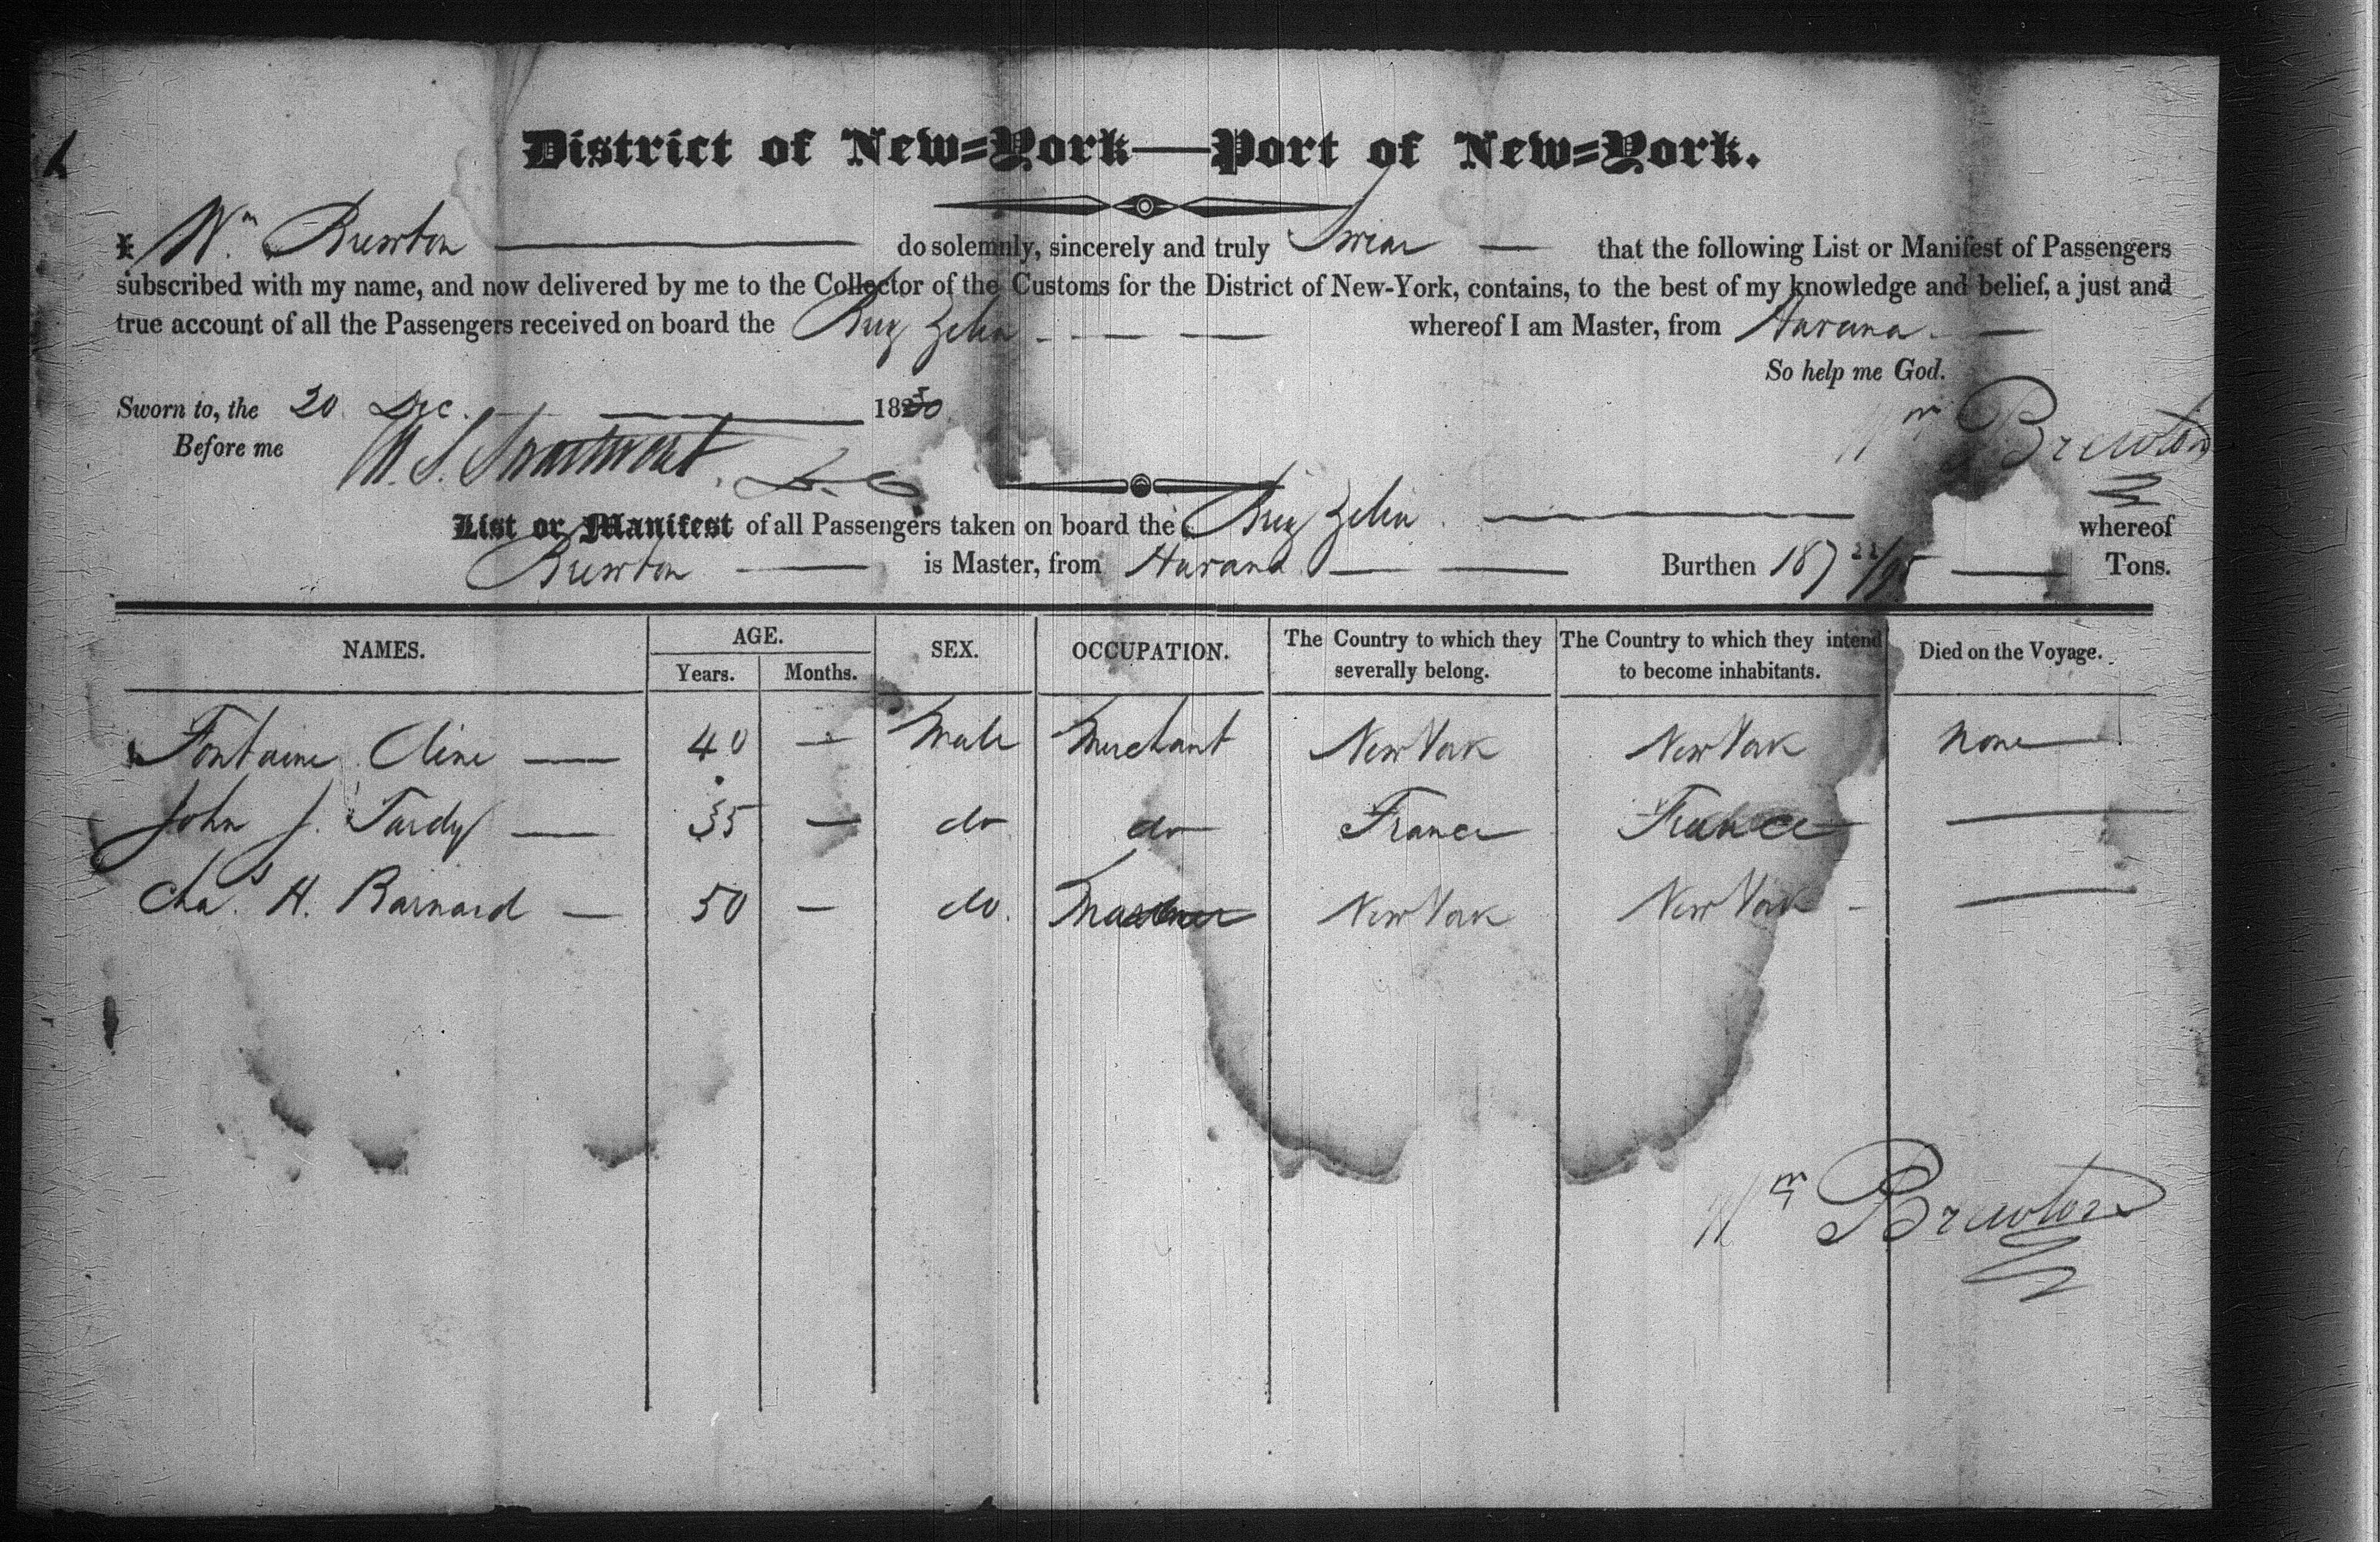 District of New-York—Port of New-York.
I Wm Brewton do solemnly, sincerely and truly Swear that the following List or Manifest of Passengers
subscribed with my name, and now delivered by me to the Collector of the Customs for the District of New-York, contains, to the best of my knowledge and belief, a just and
true account of all the Passengers received on board the Brig whereof I am Master, from Havana
So help me God.
Sworn to, the 20 Dec. 1830
Wm Brewton
Before me
List or Manifest of all Passengers taken on board the Brig whereof
Brewton is Master, from Havana Burthen 187 22/95 Tons.
NAMES. AGE. SEX. OCCUPATION. The Country to which they severally belong. The Country to which they intend to become inhabitants. Died on the Voyage.
Years. Months.
Fontaine Cline — 40 — Male Merchant New York New York None
John J. Tardy — 35 — do do France France —
Chas. H. Barnard — 50 — do. New York New York —
Wm Brewton